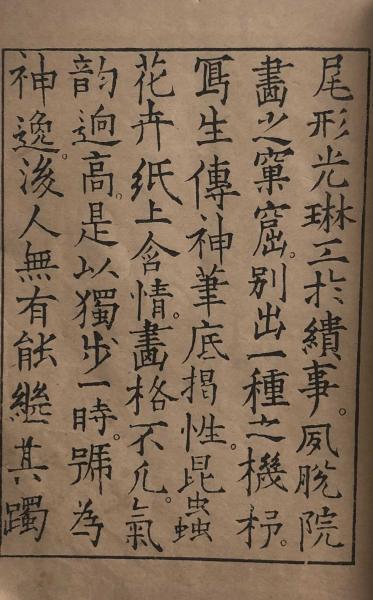 尾形光琳工於繢事。夙脱院
畫之窠窟。别出一種之機杼。
寫生傳神筆底揭性。昆虫蟲
花卉紙上含情。畫格不凡。氣
韵逈高。是以獨步一時。號為
神逸。後人無有能継其躅